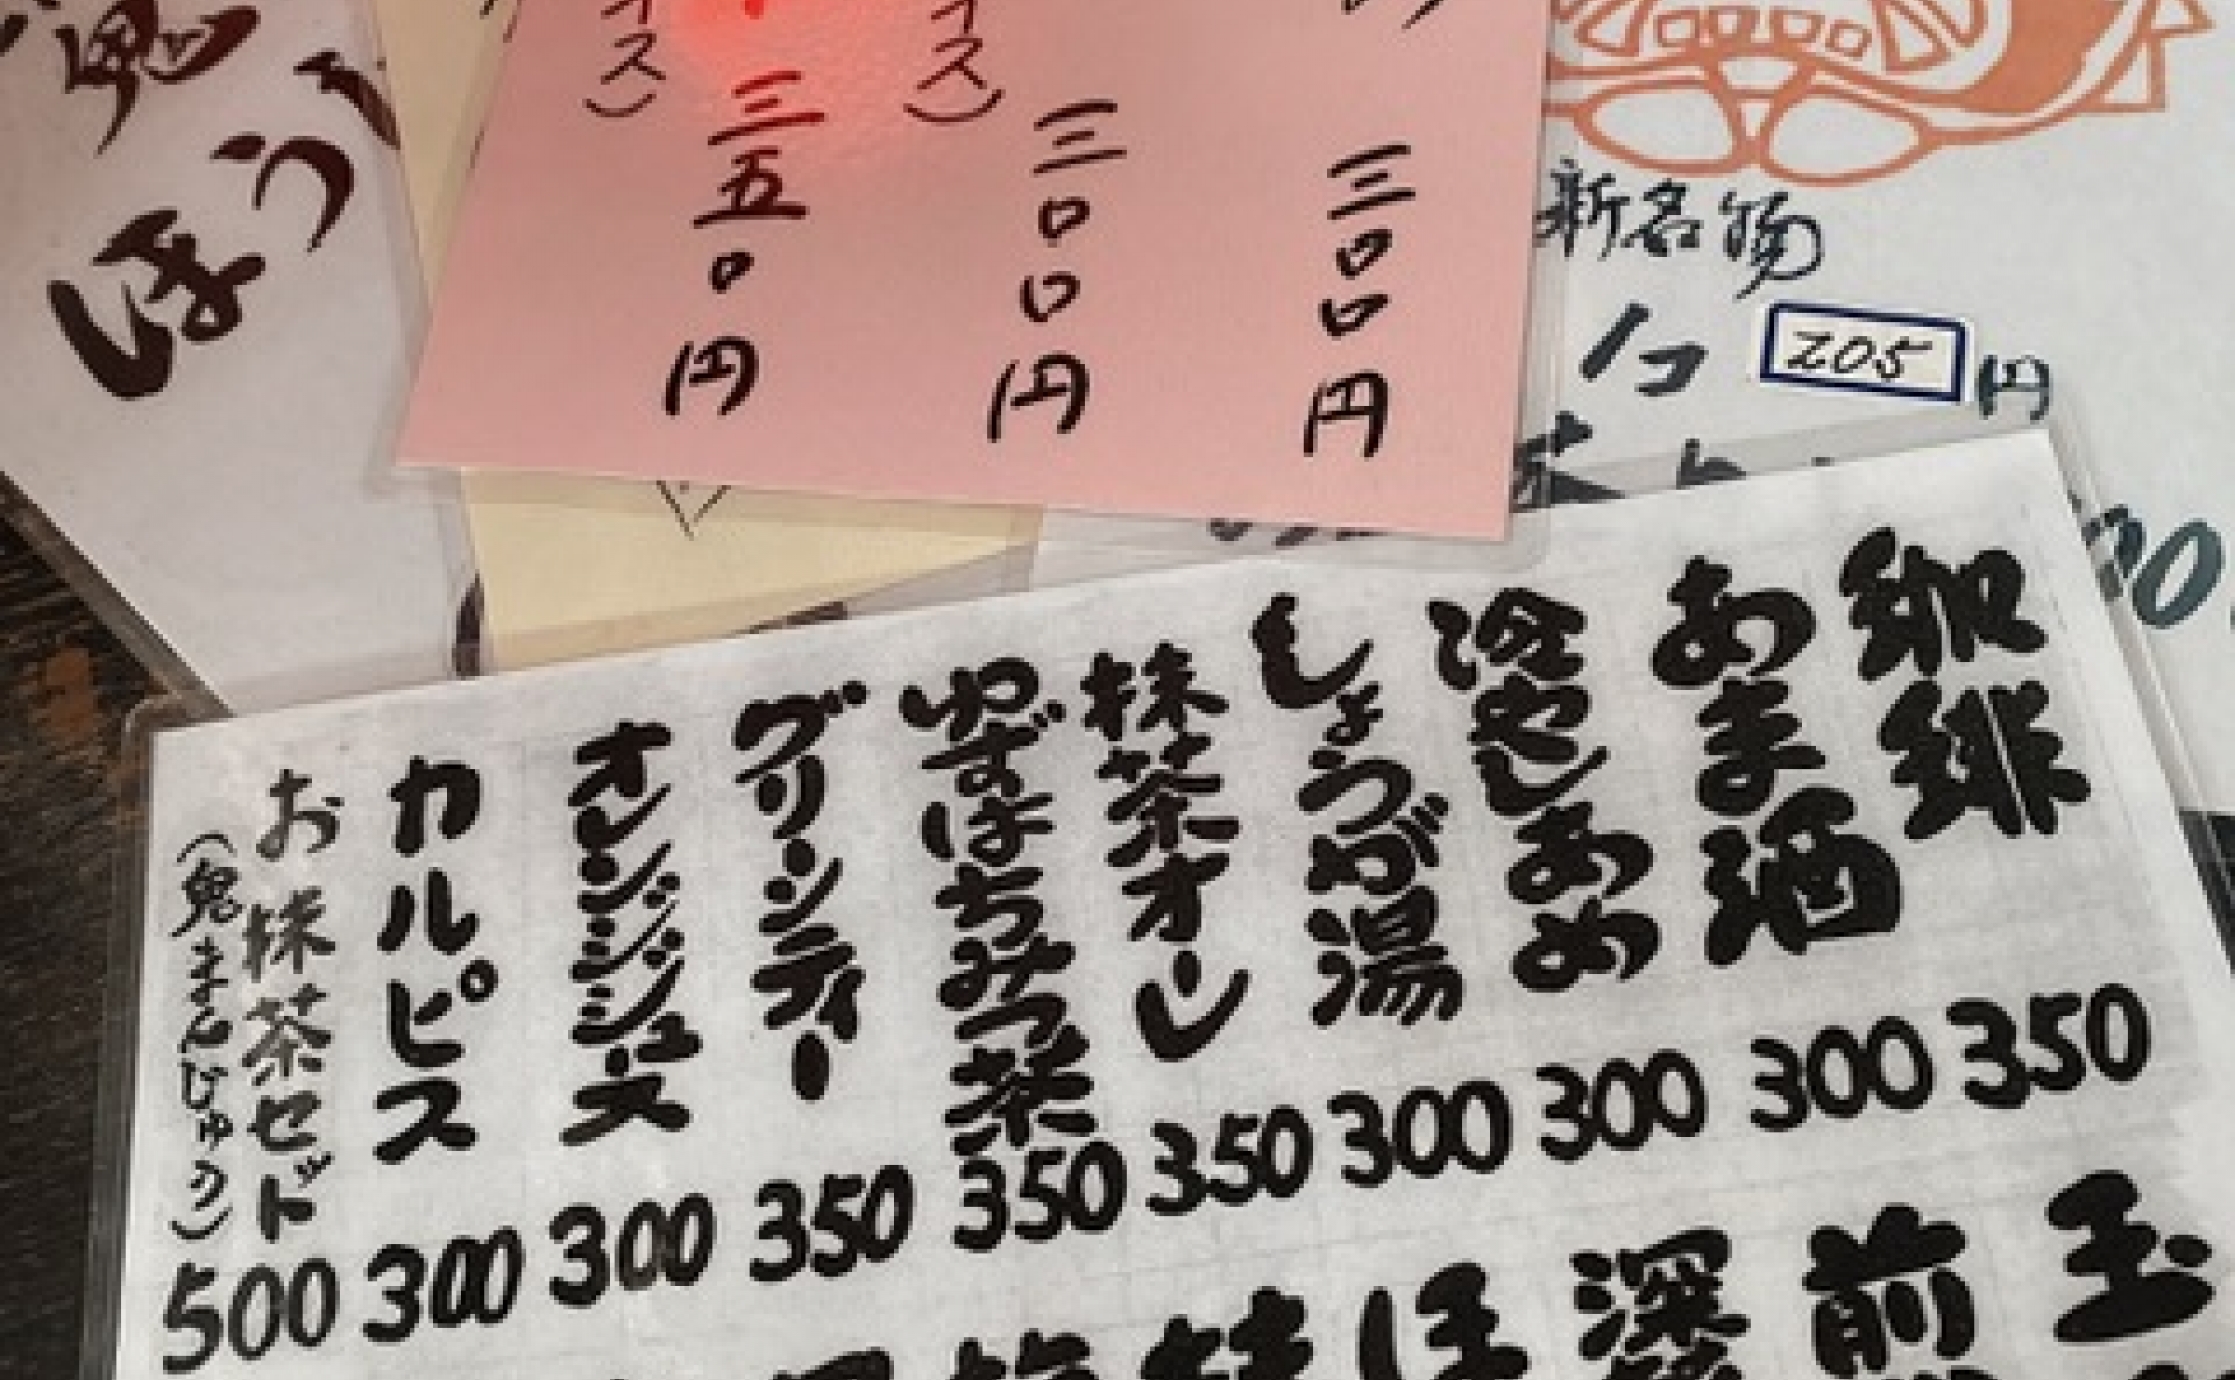 ほう
三五〇円
三〇〇円
三〇〇円
新名物
205円
珈琲 350
あま酒 300
冷やしあめ 300
しょうが湯 300
抹茶オレ 350
ゆずはちみつ茶 350
グリンティー 350
オレンジジュース 300
カルピス 300
お抹茶セット 500
(鬼まんじゅう)
玉
前
深
ほ